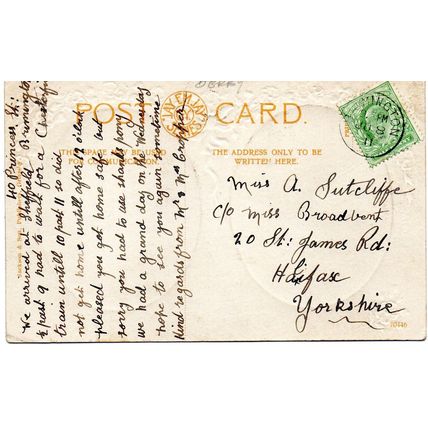 DERBY
POST CARD.
THIS SPACE MAY BE USED
FOR COMMUNICATION.
THE ADDRESS ONLY TO BE
WRITTEN HERE.
Princess St:
Brimington
We arrived at Sheffield
½ past 9 had to wait for a Chesterfield
train untill 10 past 11 so did
not get home untill after 12 o'clock
pleased you got home safe but
sorry you had to use shanks pony
we had a grand day on Wednesday
hope to see you again sometime
Kind regards from Mr & Mrs
Miss A. Sutcliffe
C/o Miss Broadbent
20 St: James Rd:
Halifax
Yorkshire
MINGTON
10446